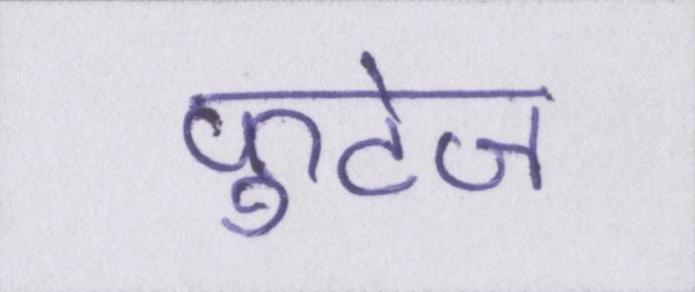 फुटेज